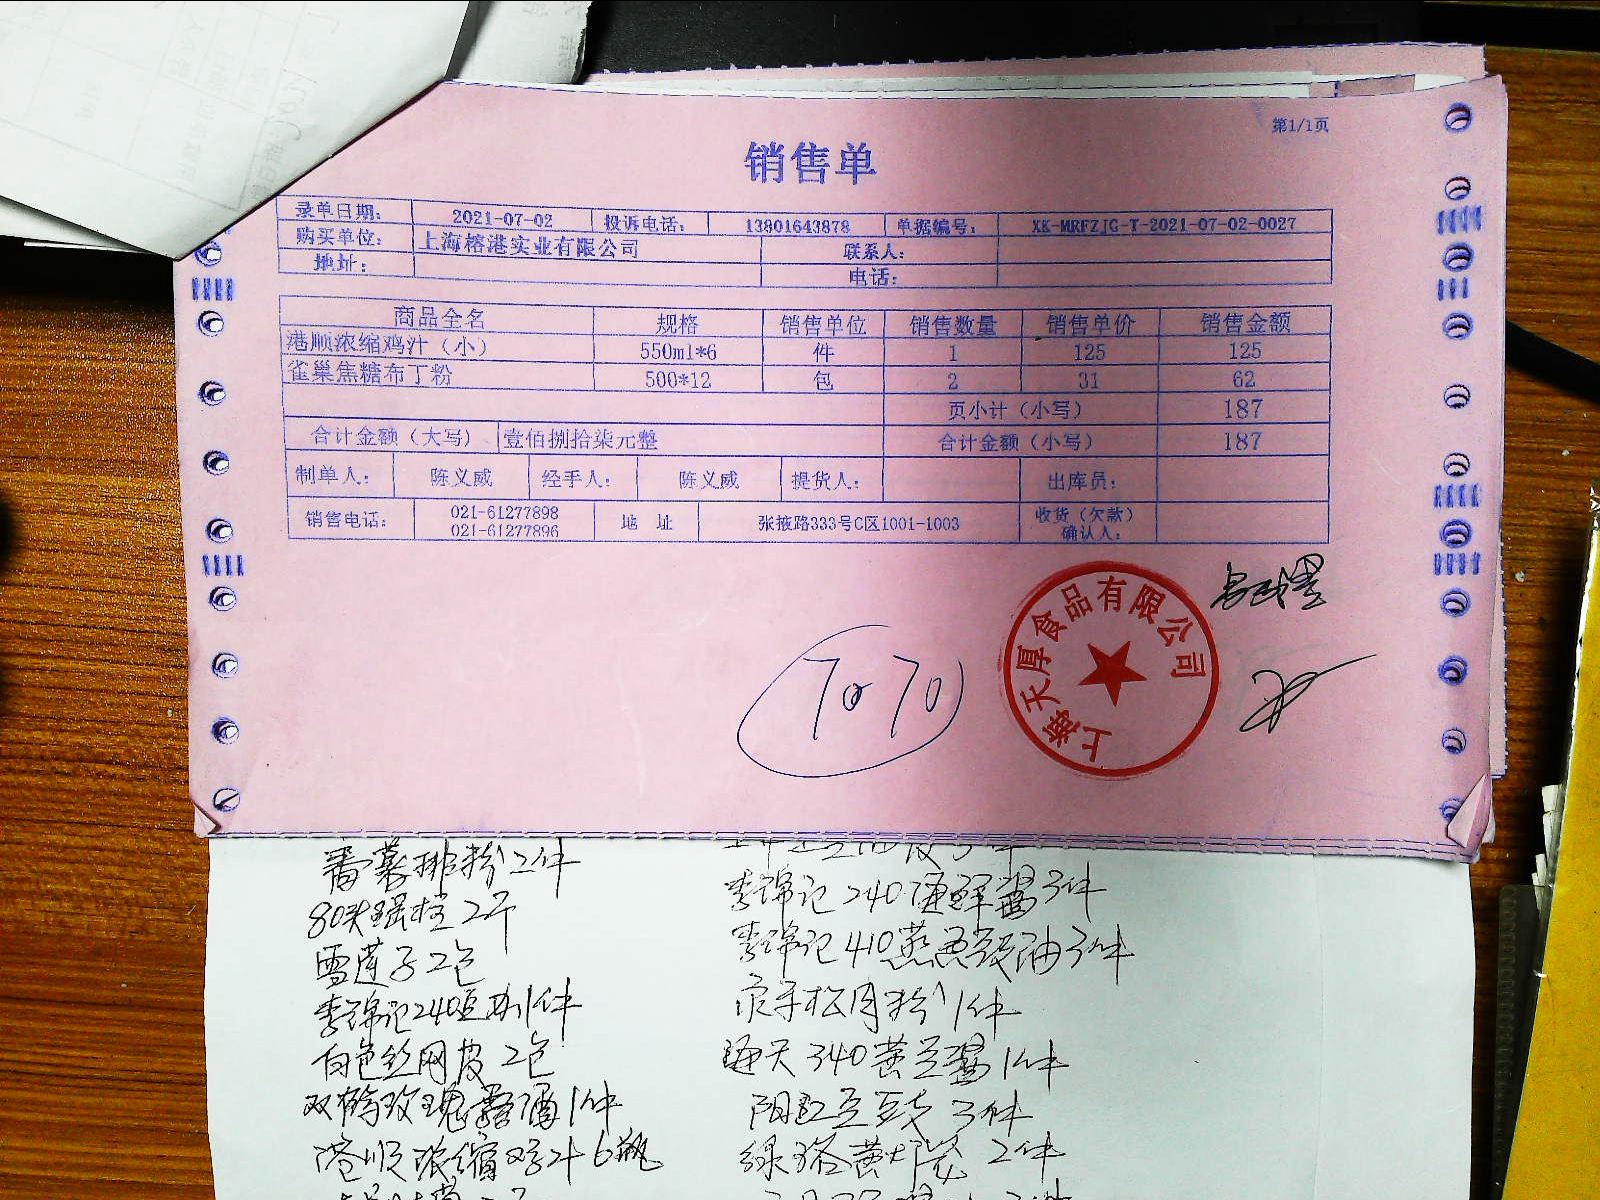 第1/1页
销售单
录单日期: 2021-07-02 投诉电话: 13801643878 单据编号: XK-MRFZJG-T-2021-07-02-0027
购买单位: 上海榕港实业有限公司 联系人:
地址: 电话:
商品全名 规格 销售单位 销售数量 销售单价 销售金额
港顺浓缩鸡汁（小） 550ml*6 件 1 125 125
雀巢焦糖布丁粉 500*12 包 2 31 62
页小计（小写） 187
合计金额（大写） 壹佰捌拾柒元整 合计金额（小写） 187
制单人: 陈义威 经手人: 陈义威 提货人: 出库员:
销售电话: 021-61277898 地 址 张掖路333号C区1001-1003 收货（欠款）
021-61277896 确认人:
上海天厚食品有限公司
70 70
排粉2件
80头 2斤
雪莲子2包
李锦记240 1件
白色丝网皮2包
双鹤玫瑰露酒1件
港顺浓缩鸡汁6瓶
李锦记240海鲜酱3件
李锦记410蒸鱼豉油3件
1件
海天340黄豆酱1件
阳江豆豉3件
2件